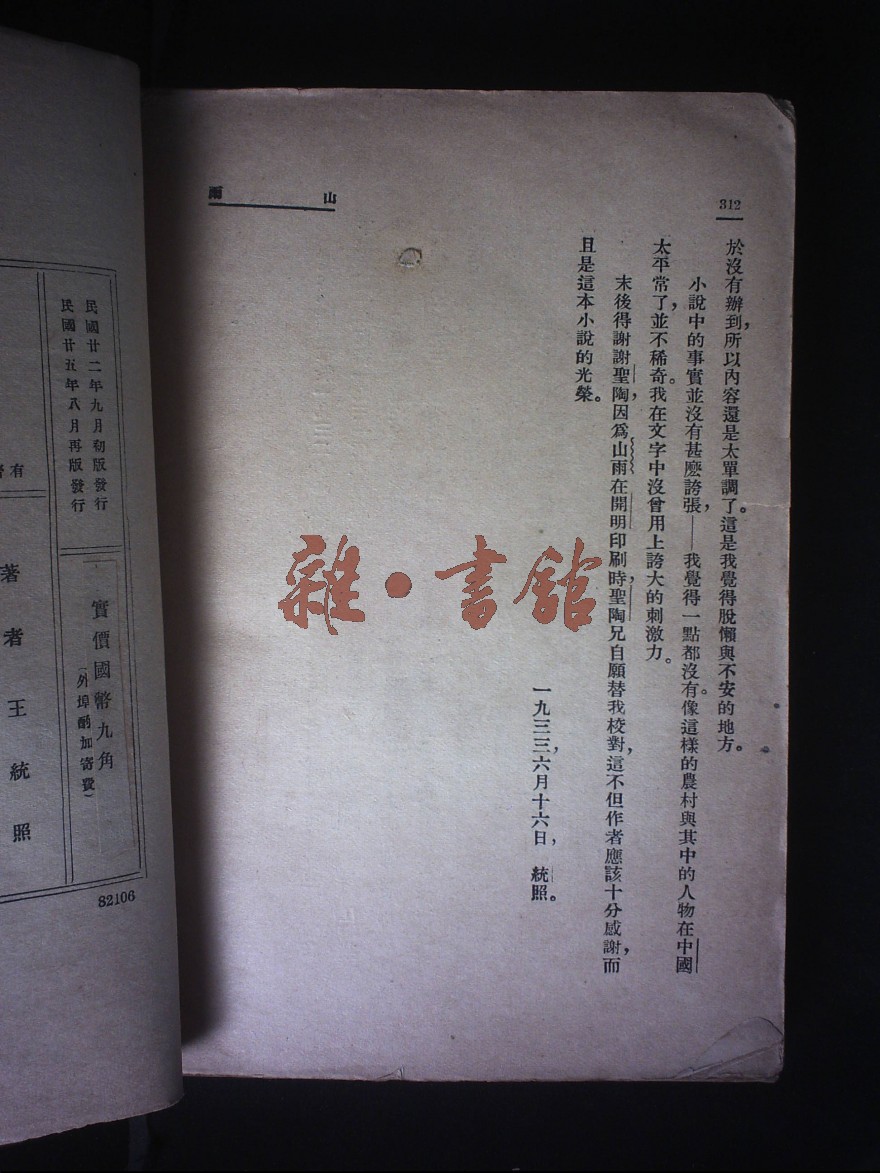 312
山雨
於沒有辦到,所以內容還是太單調了。這是我覺得脫懶與不安的地方。
小說中的事實並沒有甚麽誇張,——我覺得一點都沒有。像這樣的農村與其中的人物在中國
太平常了,並不稀奇。我在文字中沒曾用上誇大的刺激力。
末後得謝謝聖陶,因爲山雨在開明印刷時,聖陶兄自願替我校對,這不但作者應該十分感謝,而
且是這本小說的光榮。
一九三三,六月十六日,統照。
雜·書舘
民國廿二年九月初版發行
民國廿五年八月再版發行
實價國幣九角
(外埠酌加寄費)
有
著者王統照
82106